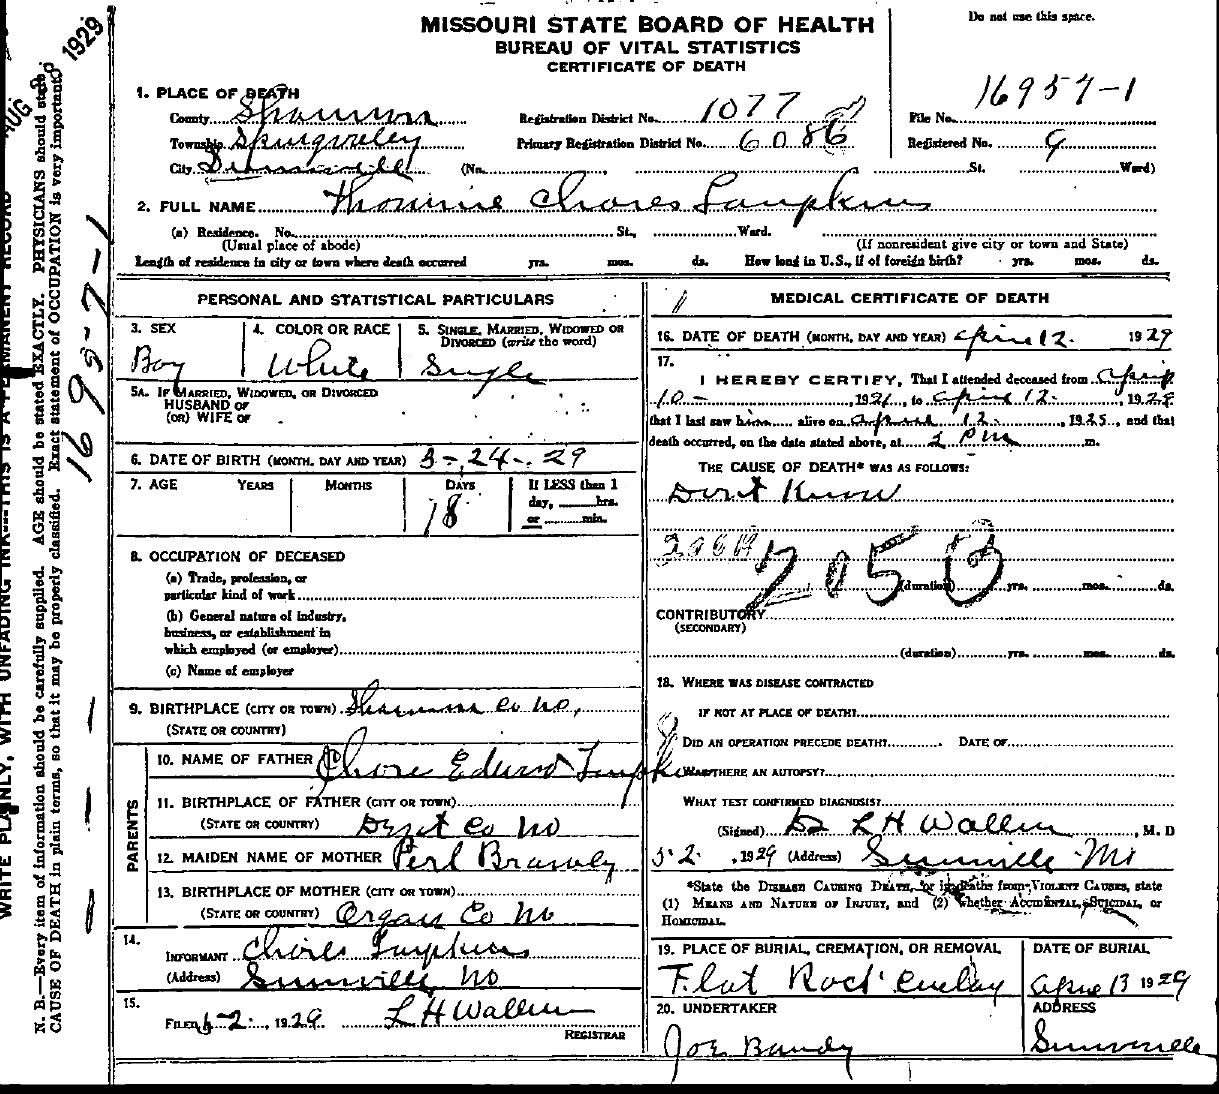 MISSOURI STATE BOARD OF HEALTH
BUREAU OF VITAL STATISTICS
CERTIFICATE OF DEATH
Do not use this space.
AUG 28 1929
1. PLACE OF DEATH
County Shannon Registration District No. 1077 File No. 16957-1
Township Primary Registration District No. 6086 Registered No. 9
City (No. , St. Ward)
2. FULL NAME Chores
(a) Residence. No. St., Ward.
(Usual place of abode) (If nonresident give city or town and State)
Length of residence in city or town where death occurred yrs. mos. ds. How long in U.S., if of foreign birth? yrs. mos. ds.
PERSONAL AND STATISTICAL PARTICULARS
3. SEX 4. COLOR OR RACE 5. SINGLE, MARRIED, WIDOWED OR DIVORCED (write the word)
Boy White Single
5A. IF MARRIED, WIDOWED, OR DIVORCED
HUSBAND OF
(OR) WIFE OF
6. DATE OF BIRTH (MONTH, DAY AND YEAR) 3-24-29
7. AGE YEARS MONTHS DAYS If LESS than 1 day, hrs. or min.
18
8. OCCUPATION OF DECEASED
(a) Trade, profession, or
particular kind of work
(b) General nature of industry,
business, or establishment in
which employed (or employer)
(c) Name of employer
9. BIRTHPLACE (CITY OR TOWN) Shannon Co Mo,
(STATE OR COUNTRY)
PARENTS
10. NAME OF FATHER
11. BIRTHPLACE OF FATHER (CITY OR TOWN)
(STATE OR COUNTRY) Dent Co Mo
12. MAIDEN NAME OF MOTHER Perl
13. BIRTHPLACE OF MOTHER (CITY OR TOWN)
(STATE OR COUNTRY) Co Mo
14.
INFORMANT Chores
(Address) Mo
15.
FILED 2, 1929 L H Wallen
REGISTRAR
MEDICAL CERTIFICATE OF DEATH
16. DATE OF DEATH (MONTH, DAY AND YEAR) April 12. 1929
17.
I HEREBY CERTIFY, That I attended deceased from April
10 -, 19 , to April 12., 1929
that I last saw him alive on April 12., 1925, and that
death occurred, on the date stated above, at 2 PM m.
THE CAUSE OF DEATH* WAS AS FOLLOWS:
Dont Know
205
(duration) yrs. mos. ds.
CONTRIBUTORY
(SECONDARY)
(duration) yrs. mos. ds.
18. WHERE WAS DISEASE CONTRACTED
IF NOT AT PLACE OF DEATH?
DID AN OPERATION PRECEDE DEATH? DATE OF
WAS THERE AN AUTOPSY?
WHAT TEST CONFIRMED DIAGNOSIS?
(Signed) Dr L H Wallen, M. D
5-2., 1929 (Address)
*State the DISEASE CAUSING DEATH, or in deaths from VIOLENT CAUSES, state
(1) MEANS AND NATURE OF INJURY, and (2) whether ACCIDENTAL, SUICIDAL, or
HOMICIDAL.
19. PLACE OF BURIAL, CREMATION, OR REMOVAL DATE OF BURIAL
Flat Rock April 13 1929
20. UNDERTAKER ADDRESS
Joe Bandy
WRITE PLAINLY, WITH UNFADING INK---THIS IS A PERMANENT RECORD
N. B.—Every item of information should be carefully supplied. AGE should be stated EXACTLY. PHYSICIANS should state
CAUSE OF DEATH in plain terms, so that it may be properly classified. Exact statement of OCCUPATION is very important.
1695-7-1